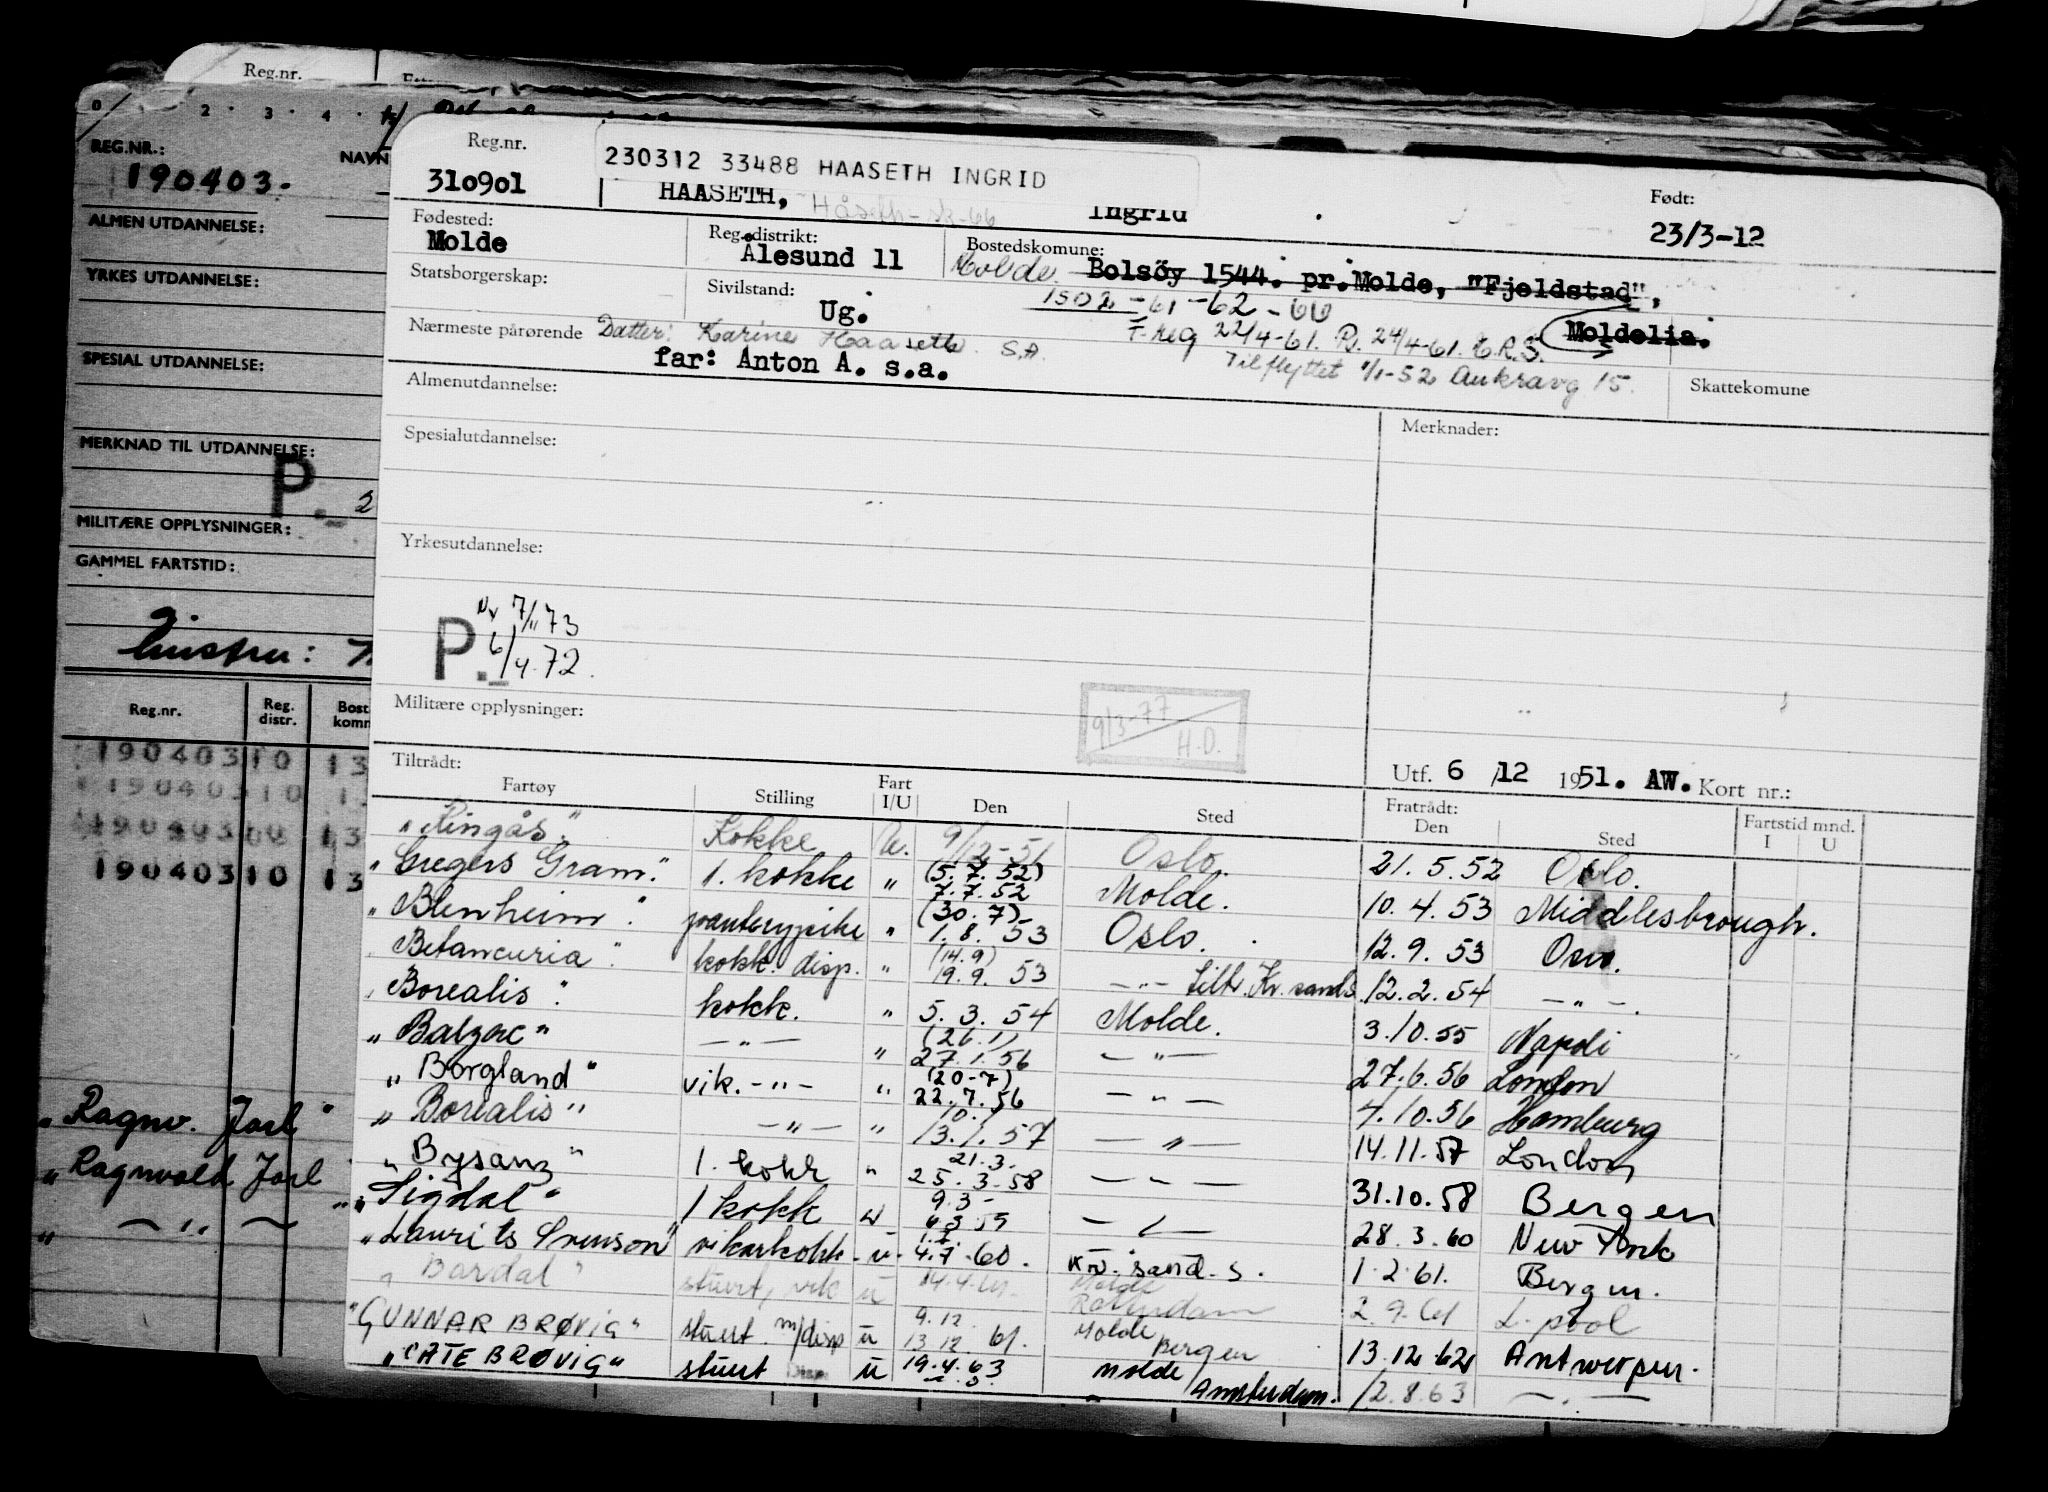 Reg.nr.
0 2 · 3 · 4 ·
REG.NR.:
190403-
NAVN
ALMEN UTDANNELSE:
YRKES UTDANNELSE:
SPESIAL UTDANNELSE:
MERKNAD TIL UTDANNELSE:
P. 2
MILITÆRE OPPLYSNINGER:
GAMMEL FARTSTID:
Reg.nr. Reg. distr. Bost. komm
190403 10 13
190403 10 13
190403 13
190403 10 13
"Ragnv. Jarl"
"Ragnvald Jarl
" — " —
Reg.nr.
310901
230312 33488 HAASETH INGRID
HAASETH, Ingrid
Født:
23/3-12
Fødested:
Molde
Reg.distrikt:
Ålesund 11
Bostedskomune:
Molde Bolsöy 1544. pr.Molde, "Fjeldstad",
Moldelia.
1502 -61-62-
Statsborgerskap:
Sivilstand:
Ug.
F.reg 22/4-61. 24/4-61.
Tilflyttet 1/1-52 Aukravg 15.
Nærmeste pårørende Datter: Karine Haaseth S.A.
far: Anton A. s.a.
Skattekomune
Almenutdannelse:
Spesialutdannelse:
Merknader:
Yrkesutdannelse:
7/11 73
P. 6/4-72.
Militære opplysninger:
9/3-77
H.D.
Utf. 6 /12 1951. AW. Kort nr.:
Tiltrådt:
Fartøy Stilling Fart I/U Den Sted Fratrådt: Den Sted Fartstid mnd. I U
"Ringås" Kokke U. 9/12-51 Oslo. 21.5.52 Oslo.
"Gregers Gram" 1. kokke " (5.7.52) 7.7.52 Molde. 10.4.53 Middlesbrough.
"Blenheim" " (30.7) 1.8.53 Oslo. 12.9.53 Oslo.
"Betancuria" kokk. disp. " (14.9) 19.9.53 — " — Kr.sands 12.2.54 — " —
"Borealis" kokk. " 5.3.54 Molde. 3.10.55 Napoli
"Balzac" — " — " (26.1) 27.1.56 — " — 27.6.56 London
"Borgland" vik. — " — " (20-7) 22.7.56 — " — 4.10.56 Hamburg
"Borealis" — " — " 10.1 13.1.57 — " — 14.11.57 London
"Bysanz" 1. kokk " 21.3. 25.3.58 — " — 31.10.58 Bergen
"Sigdal" 1 kokk u 9.3- — " — 28.3.60 New York
"Laurits Svenson" vikarkokk. u. 1.7. 4.7.60. Kr.sand.S. 1.2.61. Bergen.
"Bardal" stuert, vik u 14.4.61. Molde Rotterdam 2.9.61 L.pool
"GUNNAR BRØVIG" stuert m/disp u 9.12. 13.12.61. Molde Bergen 13.12.62 Antwerpen.
"CATE BRØVIG" stuert Disp u 19.4.63 Molde / Amsterdam. 12.8.63 — " —